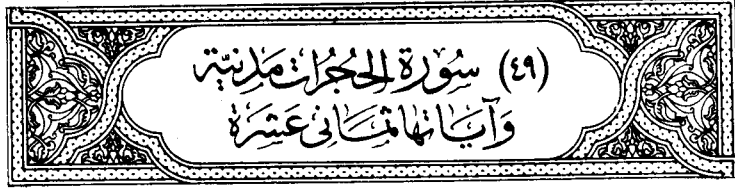 (٤٩) سُورَة الحُجُرَات مَدَنِيَّة
وَآيَاتهَا ثَمَانِى عَشَرَة